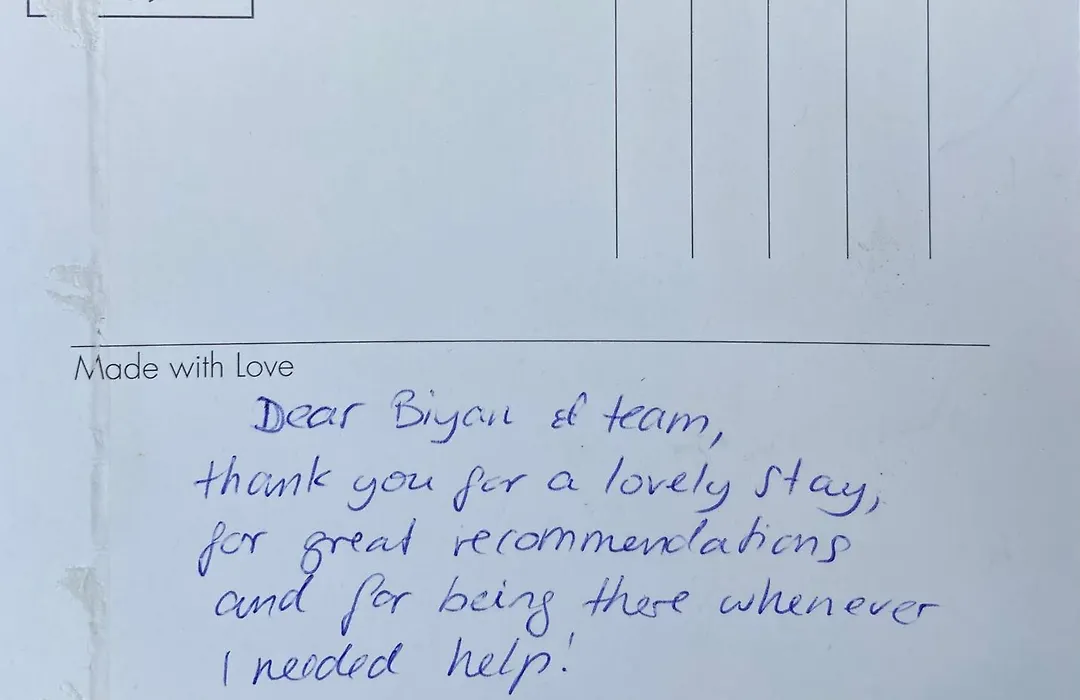 Made with Love
Dear Biyan & team,
thank you for a lovely stay,
for great recommendations
and for being there whenever
I needed help!